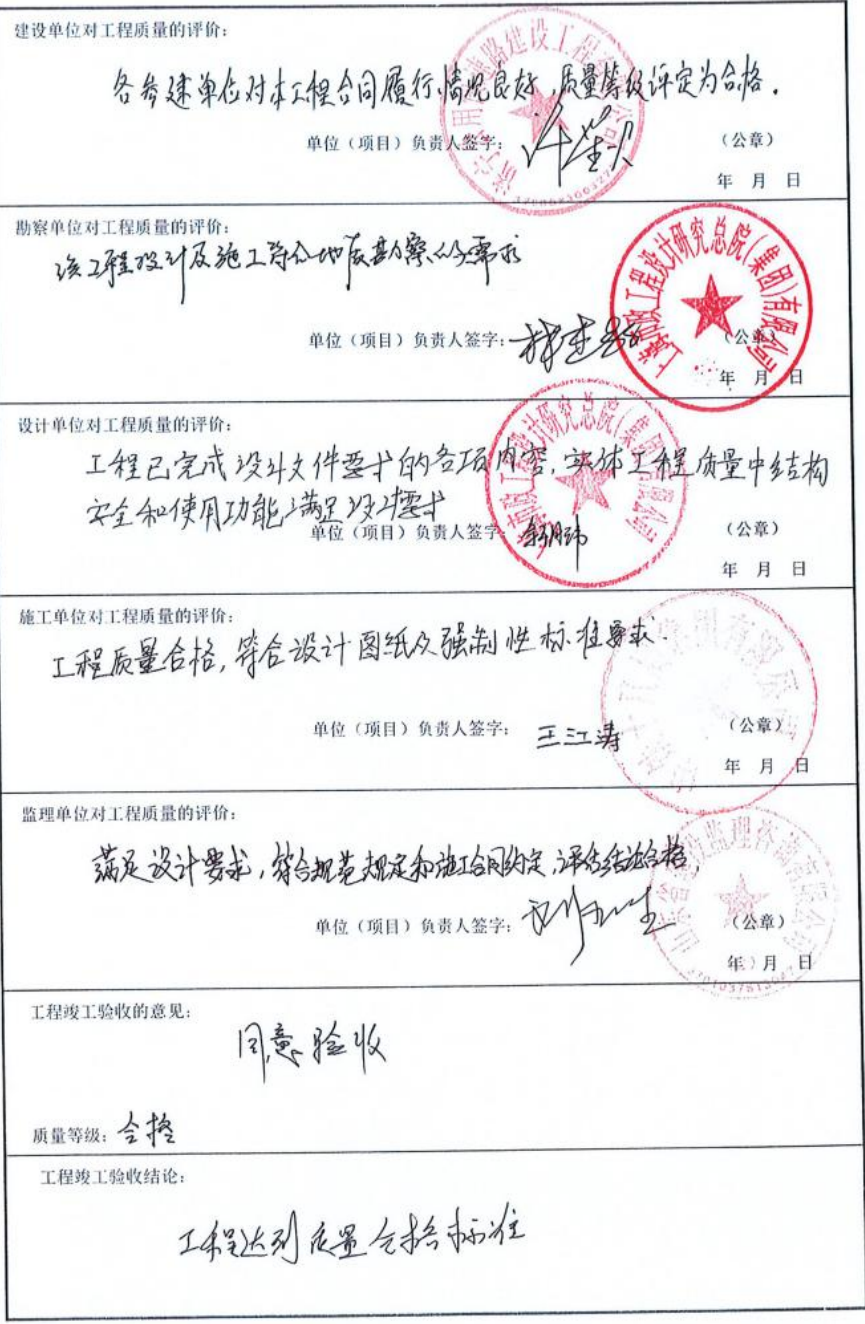 建设单位对工程质量的评价:
各参建单位对本工程合同履行情况良好,质量等级评定为合格。
单位(项目)负责人签字:
(公章)
年 月 日
勘察单位对工程质量的评价:
该工程设计及施工符合地质勘察的要求
单位(项目)负责人签字:
上海市政工程设计研究总院(集团)有限公司
(公章)
年 月 日
设计单位对工程质量的评价:
工程已完成设计文件要求的各项内容,实体工程质量中结构
安全和使用功能满足设计要求
单位(项目)负责人签字:
市政工程设计研究总院(集团)有限公司
(公章)
年 月 日
施工单位对工程质量的评价:
工程质量合格,符合设计图纸及强制性标准要求.
单位(项目)负责人签字: 王江涛
(公章)
年 月 日
监理单位对工程质量的评价:
满足设计要求,符合规范规定和施工合同约定,评估结论合格,
单位(项目)负责人签字:
(公章)
年 月 日
工程竣工验收的意见:
同意验收
质量等级: 合格
工程竣工验收结论:
工程达到质量合格标准